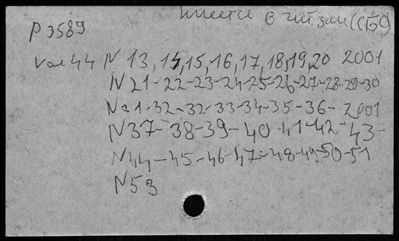 имеется в чит зале (СБО)
P 3589
Vol 44 N 13, 14, 15, 16, 17, 18, 19, 20 2001
N 21-22-23-24-25-26-27-28-29-30
N 31-32-32-33-34-35-36- 2001
N 37-38-39-40-41-42-43-
N 44-45-46-47-48-49-50-51
N 53